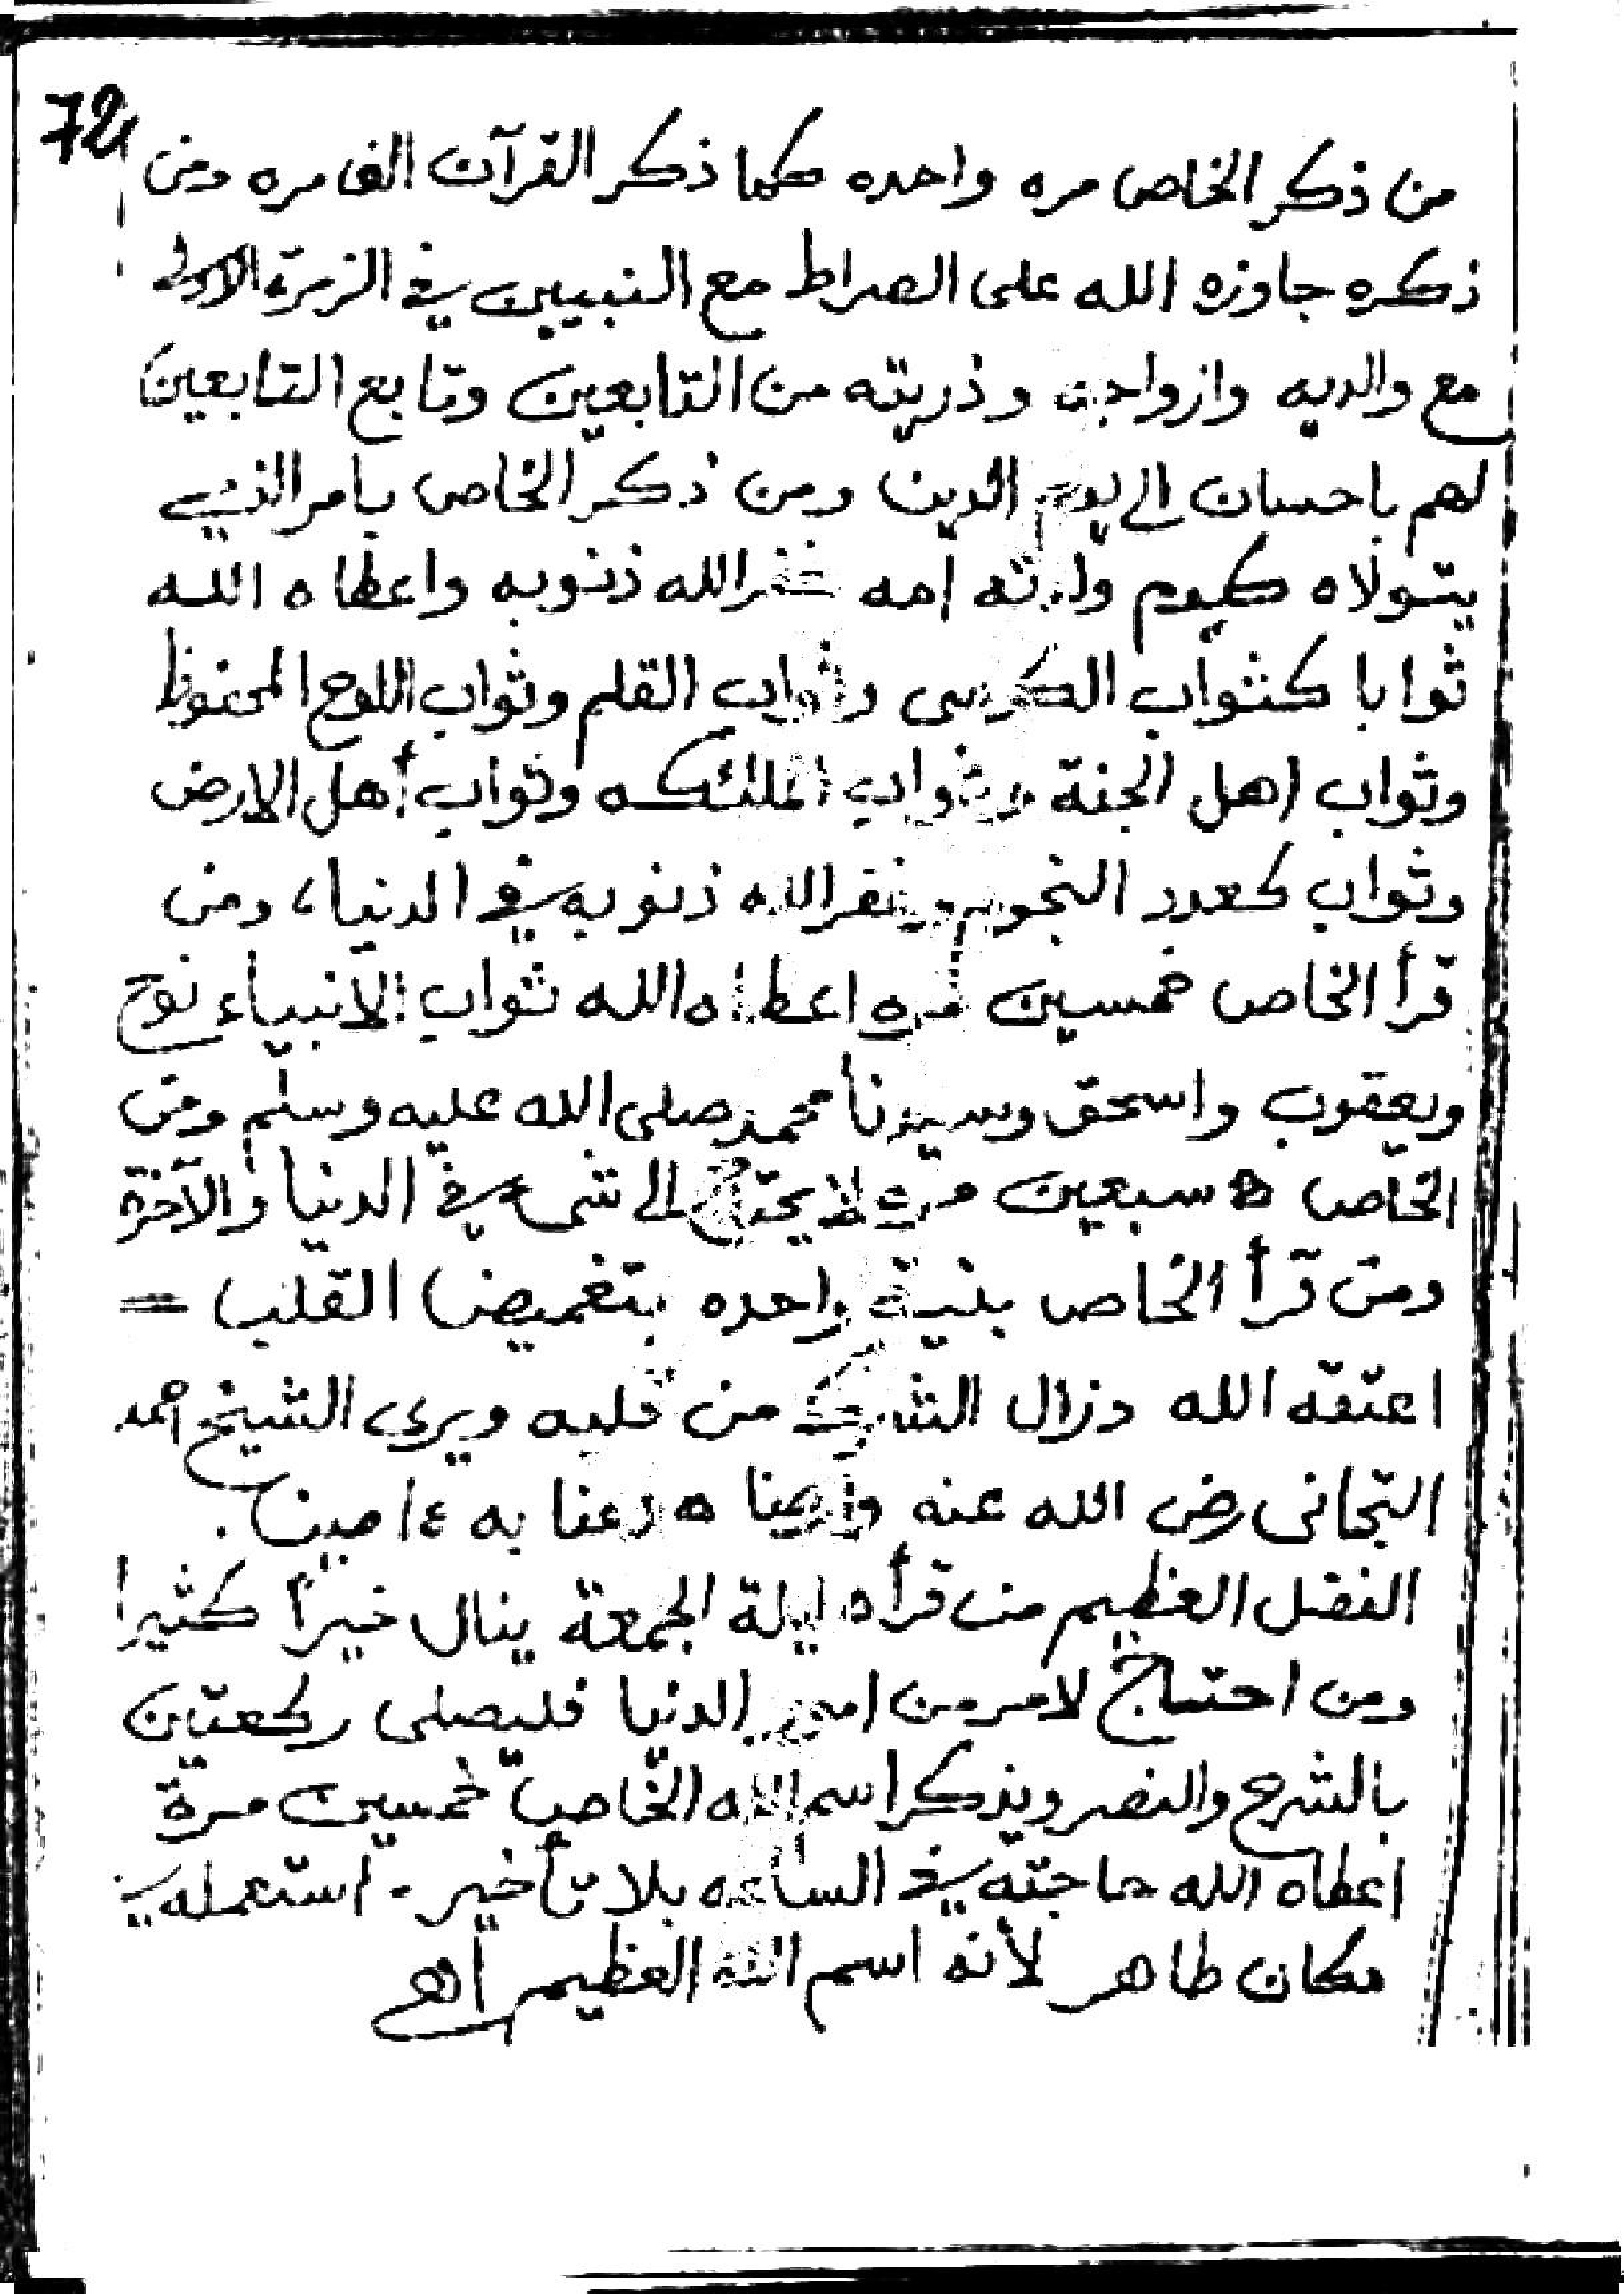 72
من ذكر الخاص مره واحده كما ذكر القرآن الف مره ومن
ذكره جاوزه الله على الصراط مع النبيين في الزمرة الاولى
مع والديه وازواجه وذريته من التابعين وتابع التابعين
لهم باحسان الى يوم الدين ومن ذكر الخاص بامر الذي
يتولاه كيوم ولدته امه غفر الله ذنوبه واعطاه الله
ثوابا كثواب الكرسى وثواب القلم وثواب اللوح المحفوظ
وثواب اهل الجنة وثواب الملئكه وثواب أهل الارض
وثواب كعدد النجوم وغفر الله ذنوبه في الدنيا، ومن
قرأ الخاص خمسين مره اعطاه الله ثواب الانبياء نوح
ويعقوب واسحق وسيدنا محمد صلى الله عليه وسلم ومن
الخاص ه سبعين مره لا يحتاج الى شىء في الدنيا والآخرة
ومن قرأ الخاص بنية واحده بتغميض القلب =
اعتقه الله وزال الشرك من قلبه ويرى الشيخ احمد
التجانى رضى الله عنه وارضاه وعنا به ءامين.
الفضل العظيم من قرأه ليلة الجمعة ينال خيرا كثيرا
ومن احتاج لامر من امور الدنيا فليصلى ركعتين
بالشرح والنصر ويذكر اسم الله الخاص خمسين مرة
اعطاه الله حاجته في الساعه بلا تأخير. استعمله في
مكان طاهر لأنه اسم الله العظيم اهـ